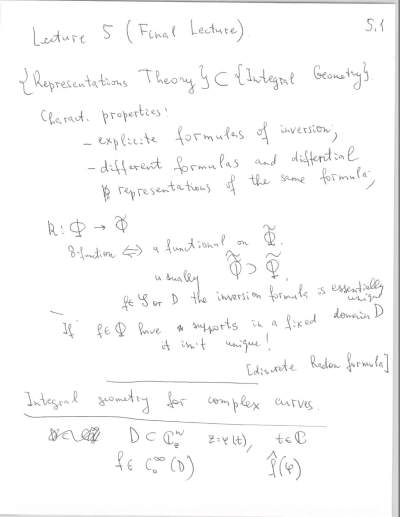 Lecture 5 (Final Lecture) 5.1
{Representations Theory} ⊂ {Integral Geometry}.
Charact. properties:
– explicite formulas of inversion;
– different formulas and differtial
representations of the same formula;
R: Φ → Φ̃
δ-function ⇔ a functional on Φ̃.
usually Φ̃̃ ⊃ Φ̃.
f∈ S or D the inversion formula is essentially
unique
If f∈ Φ have supports in a fixed domain D
it isn't unique!
[discrete Radon formula]
Integral geometry for complex curves.
D ⊂ ℂⁿ_z z=φ(t), t∈ℂ
f∈ C₀^∞(D) f̂(φ)